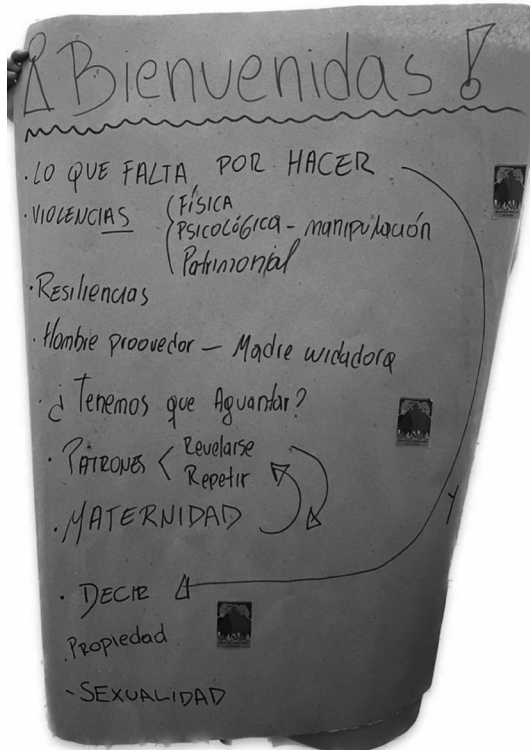 ¡Bienvenidas!
· LO QUE FALTA POR HACER
· VIOLENCIAS ( FÍSICA
( PSICOLÓGICA - manipulación
( Patrimonial
· Resiliencias
· Hombre proovedor - Madre cuidadora
· ¿Tenemos que Aguantar?
· PATRONES < Revelarse
Repetir
· MATERNIDAD
Y
· DECIR
· Propiedad
- SEXUALIDAD